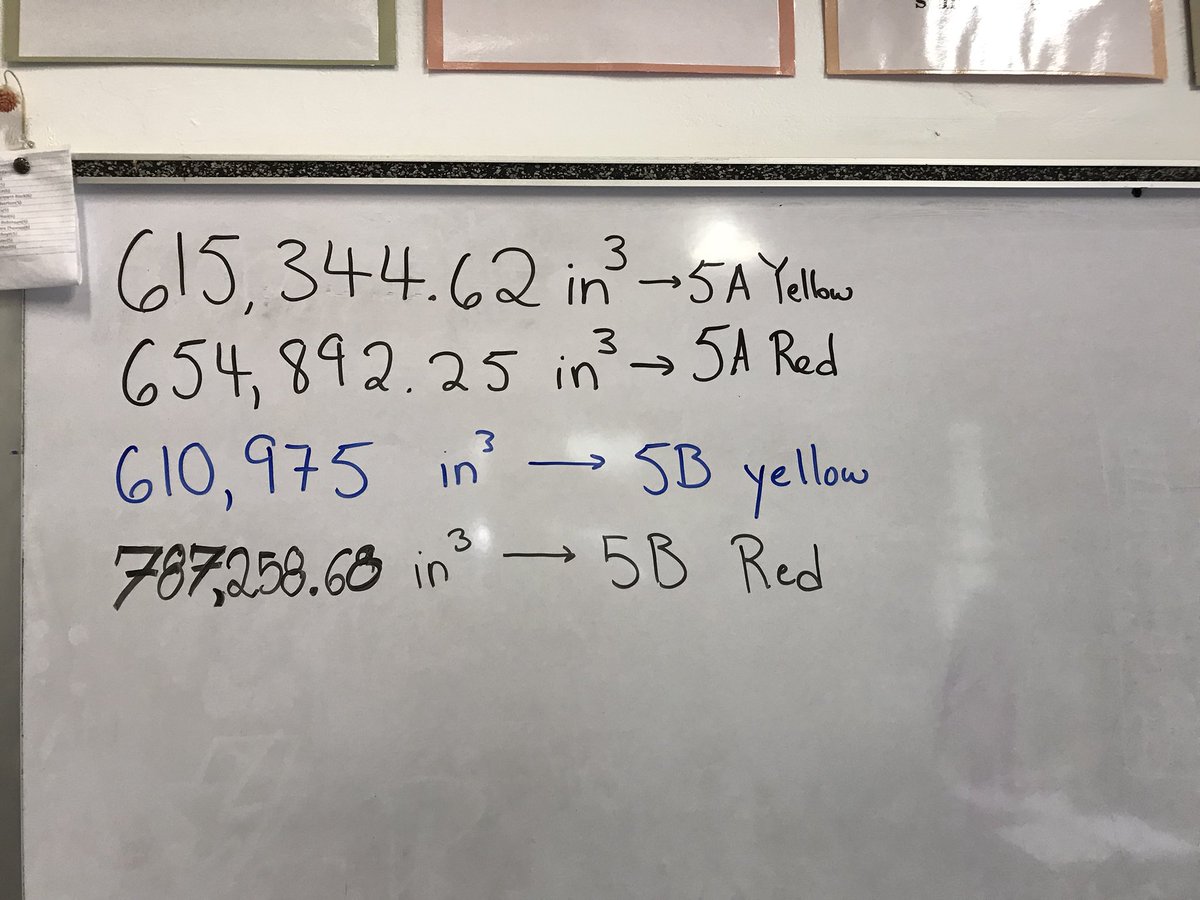 615,344.62 in³ → 5A Yellow
654,892.25 in³ → 5A Red
610,975 in³ → 5B yellow
787,258.68 in³ → 5B Red